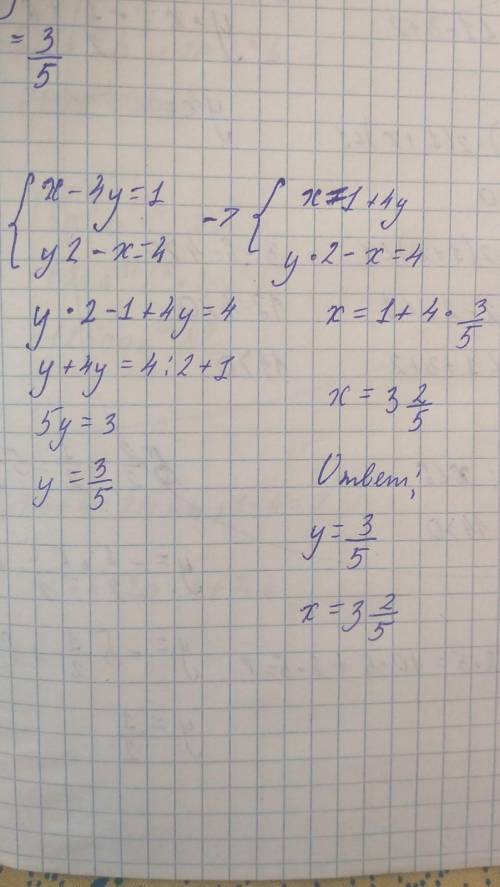 = 3/5
{ x - 4y = 1 -> { x = 1 + 4y
y 2 - x = 4
y · 2 - x = 4
y · 2 - 1 + 4y = 4
y + 4y = 4 : 2 + 1
5y = 3
y = 3/5
x = 1 + 4 · 3/5
x = 3 2/5
Ответ:
y = 3/5
x = 3 2/5